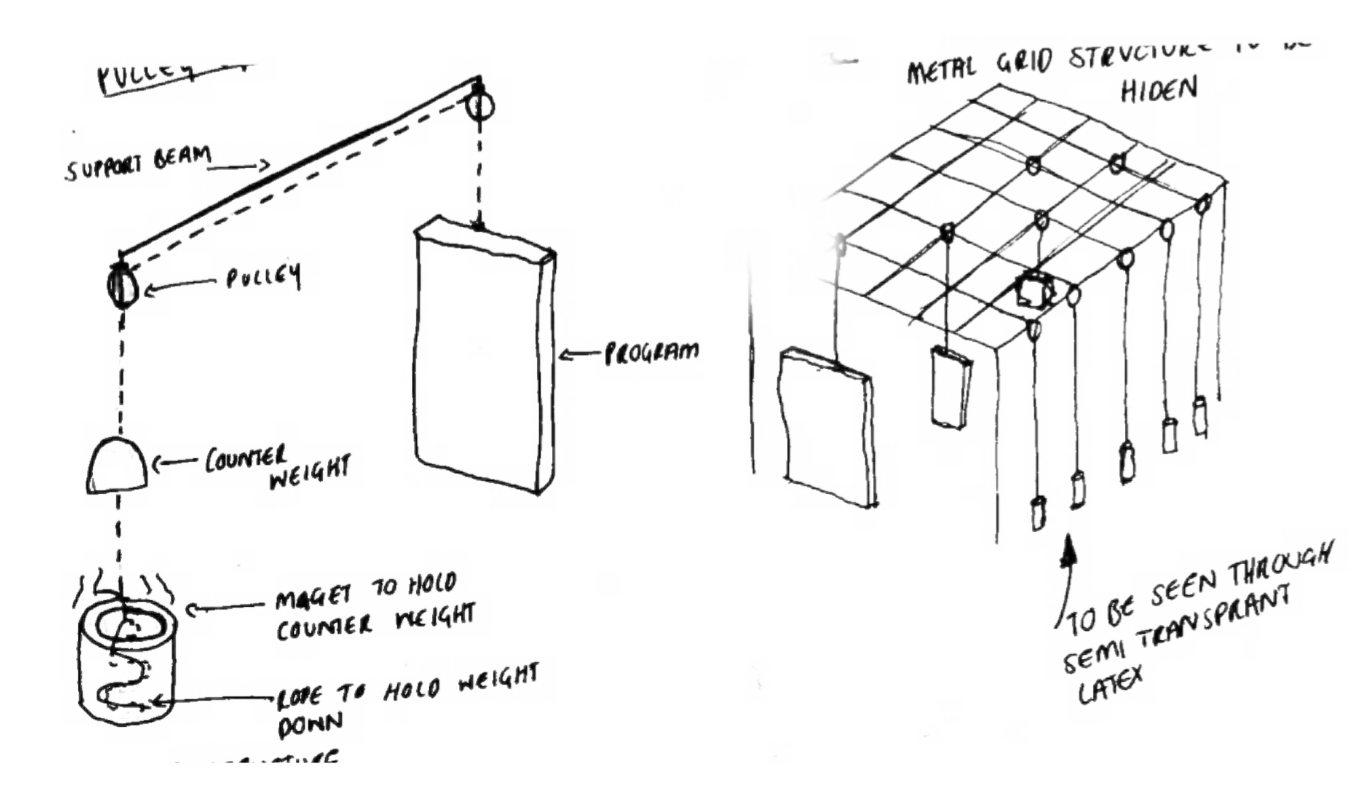 PULLEY
SUPPORT BEAM
PULLEY
PROGRAM
COUNTER
WEIGHT
MAGET TO HOLD
COUNTER WEIGHT
ROPE TO HOLD WEIGHT
DOWN
METAL GRID STRUCTURE TO BE
HIDEN
TO BE SEEN THROUGH
SEMI TRANSPRANT
LATEX